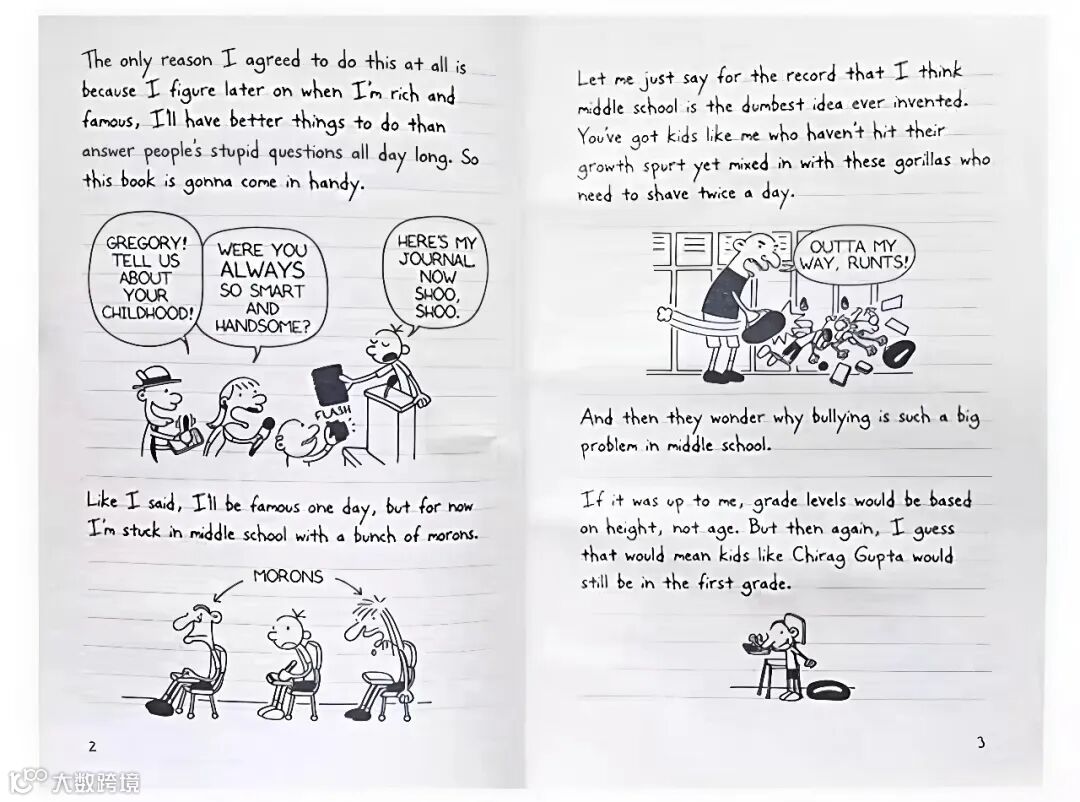 The only reason I agreed to do this at all is
because I figure later on when I'm rich and
famous, I'll have better things to do than
answer people's stupid questions all day long. So
this book is gonna come in handy.
GREGORY!
TELL US
ABOUT
YOUR
CHILDHOOD!
WERE YOU
ALWAYS
SO SMART
AND
HANDSOME?
HERE'S MY
JOURNAL
NOW
SHOO,
SHOO.
FLASH
Like I said, I'll be famous one day, but for now
I'm stuck in middle school with a bunch of morons.
MORONS
2
Let me just say for the record that I think
middle school is the dumbest idea ever invented.
You've got kids like me who haven't hit their
growth spurt yet mixed in with these gorillas who
need to shave twice a day.
OUTTA MY
WAY, RUNTS!
And then they wonder why bullying is such a big
problem in middle school.
If it was up to me, grade levels would be based
on height, not age. But then again, I guess
that would mean kids like Chirag Gupta would
still be in the first grade.
3
大数跨境